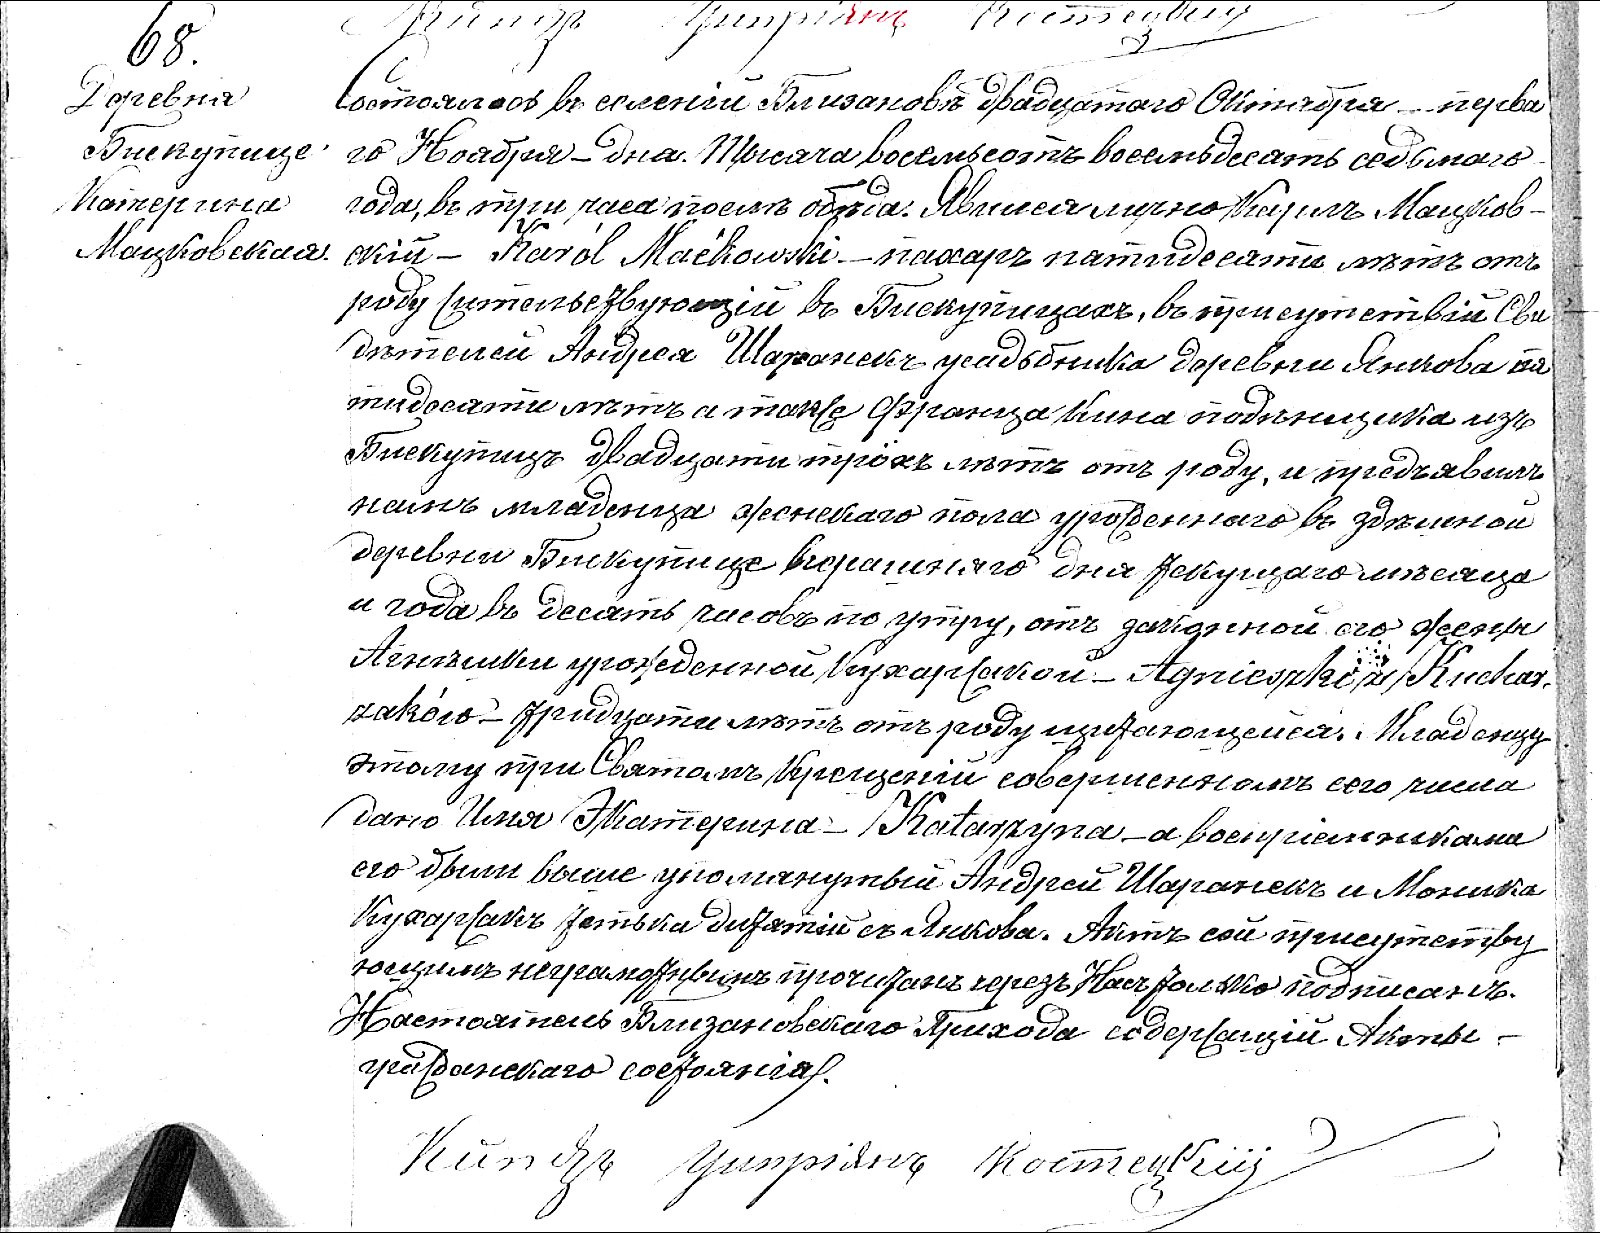 Киндзъ Циприянъ Костецкій
68.
Деревня
Бискупице
Катерина
Мацковская.
Состоялось въ селеніи Близановѣ двадцатого Октября — перва
го Ноября — дна. Тысяча восемьсотъ восемьдесять седьмаго
года, въ три часа послѣ обѣда. Явился лично Кароль Мацков-
скій — Karól Maćkowski — пахарь пятидесяти лѣтъ отъ
роду жительствующій въ Бискупицахъ, въ присутствіи Сви
дѣтелей Андрея Шаранекъ усадьбника деревни Янкова пя
тидесяти лѣтъ а также Франца Кина поденщика изъ
Бискупицъ двадцати трöхъ лѣтъ отъ роду, и предъявилъ
намъ младенца женскаго пола урожденного въ здѣшной
деревни Бискупице вчерашняго дня текущаго мѣсяца
и года въ десять часовъ по утру, отъ законной его жены
Агнѣшки урожденной Кухаржакой — Agnieszki z Kuchar-
zaków — тридцати лѣтъ отъ роду щитающейся. Младенцу
этому при Святомъ Крещеніи совершенномъ сего числа
дано Имя Экатерина — Katarzyna — а воспріемниками
его были выше упомянутый Андрей Шаранекъ и Моника
Кухаржакъ тетька дитятій съ Янкова. Актъ сей присутству
ющимъ неграмотнымъ прочитанъ черезъ Насъ только подписанъ.
Настоятель Близановскаго Прихода содержащій Акты —
гражданскаго состоянія.
Киндзъ Циприянъ Костецкій